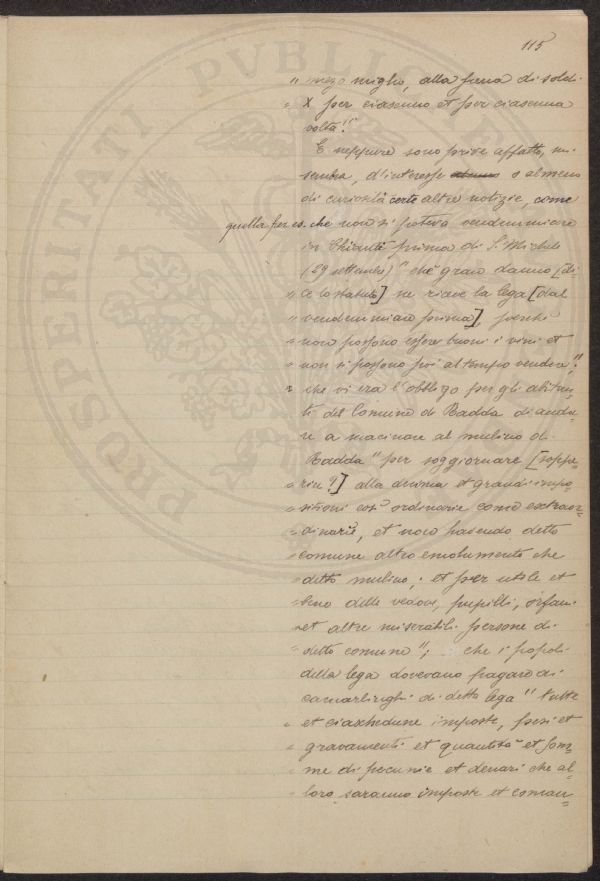 115
" mezo miglio, alla pena di soldi
" X per ciascuno et per ciascuna
volta."
E neppure sono prive affatto, mi
sembra, d'interesse o almeno
di curiosità certe altre notizie, come
quella per es. che non si poteva vendemmiare
in Chianti prima di S. Michele
(29 settembre) " che gran danno [di-
" ce lo statuto] ne riceve la lega [dal
" vendemmiare prima], perchè
" non possono essere buoni i vini et
" non si possono poi al tempo vendere;"
" che vi era l'obbligo per gli abitan-
ti del Comune di Radda di anda-
re a macinare al mulino di
Radda " per soggiornare [soppe-
rire?] alla decima et grandi impo-
" sitioni così ordinarie come extraor-
" dinarie, et non havendo detto
" comune altro emolumento che
" detto mulino; et per utile et
" bene delle vedove, pupilli, orfani
" et altre miserabili persone di
" detto comune"; che i popoli
della lega dovevano pagare ai
camarlinghi di detta lega " tutte
" et ciaschedune imposte, pesi et
" gravamenti et quantità et som-
" me di pecunie et denari che al-
" loro saranno imposte et coman-
PROSPERITATI PVBLICAE